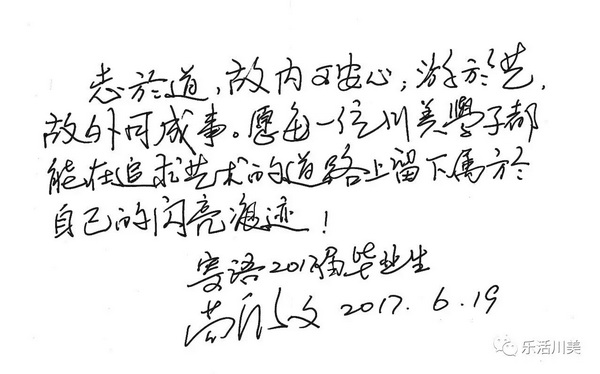 志於道，故内可安心；游於艺，
故外可成事。愿每一位川美學子都
能在追求艺术的道路上留下属於
自己的闪亮痕迹！
寄语2017届毕业生
2017.6.19
乐活川美